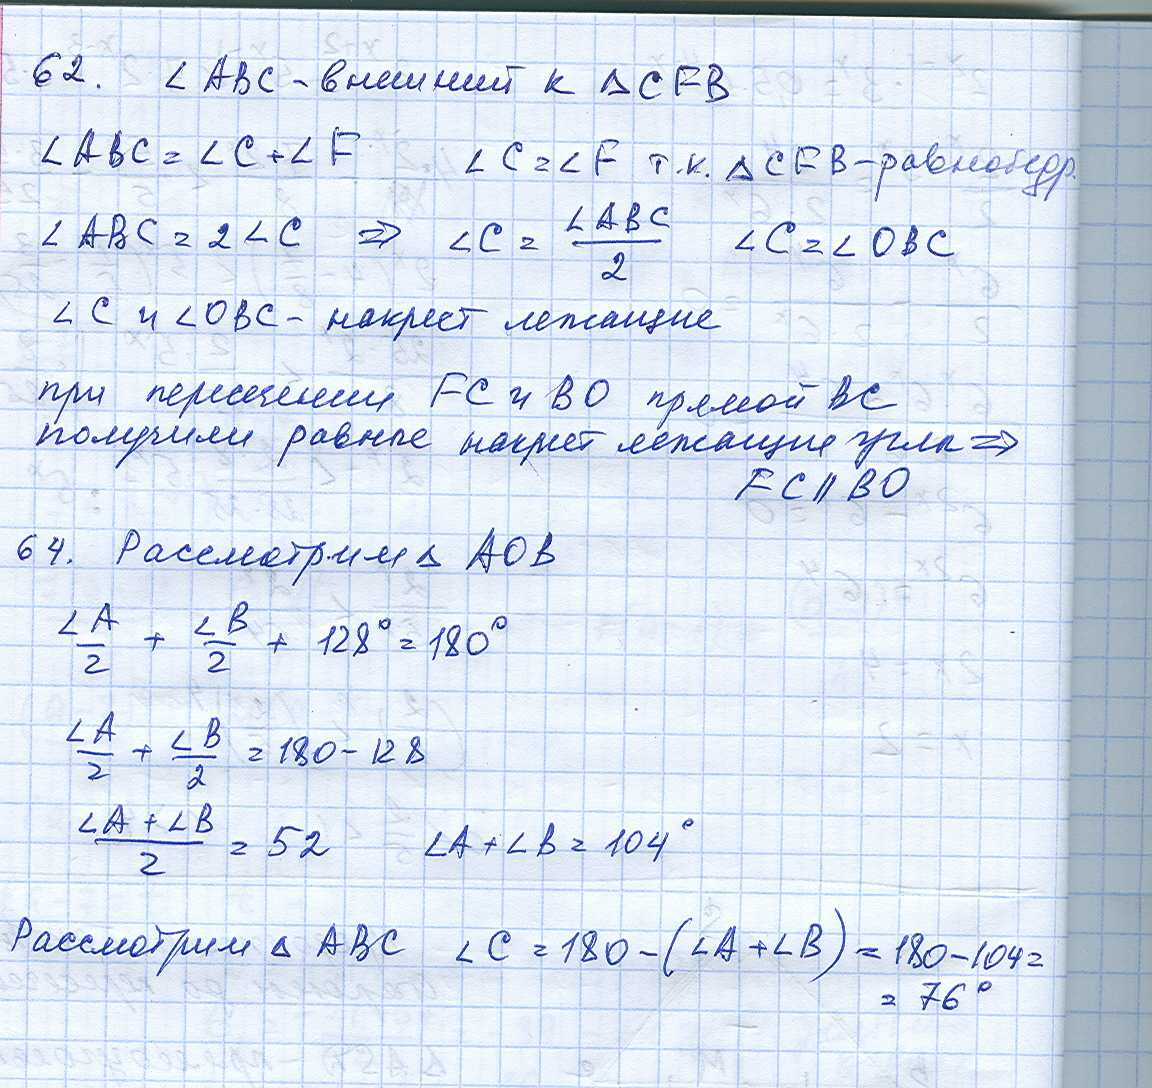 62. ∠ABC - внешний к △CFB
∠ABC = ∠C + ∠F ∠C = ∠F т.к. △CFB - равнобедр.
∠ABC = 2∠C ⇒ ∠C = ∠ABC/2 ∠C = ∠OBC
∠C и ∠OBC - накрест лежащие
при пересечении FC и BO прямой BC
получили равные накрест лежащие углы ⇒
FC || BO
64. Рассмотрим △ AOB
∠A/2 + ∠B/2 + 128° = 180°
∠A/2 + ∠B/2 = 180 - 128
(∠A + ∠B)/2 = 52 ∠A + ∠B = 104°
Рассмотрим △ ABC ∠C = 180 - (∠A + ∠B) = 180 - 104 =
= 76°